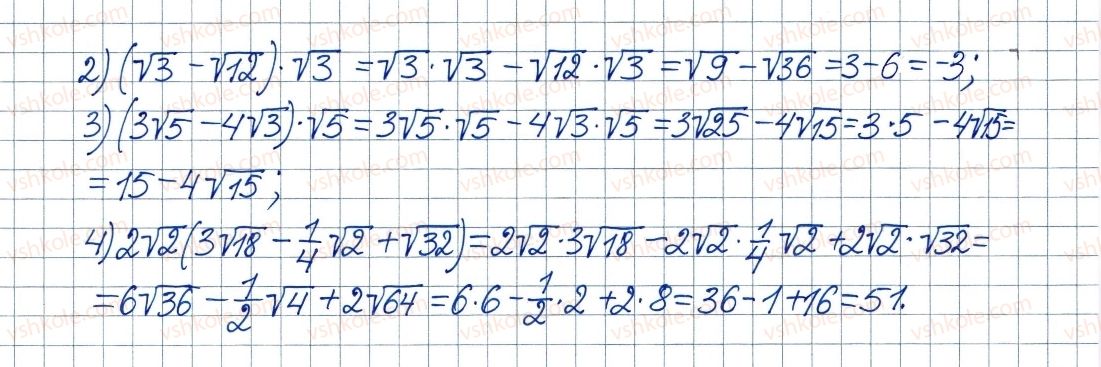 2) (√3 − √12) · √3 = √3 · √3 − √12 · √3 = √9 − √36 = 3 − 6 = −3;
3) (3√5 − 4√3) · √5 = 3√5 · √5 − 4√3 · √5 = 3√25 − 4√15 = 3 · 5 − 4√15 =
= 15 − 4√15;
4) 2√2 (3√18 − 1/4 √2 + √32) = 2√2 · 3√18 − 2√2 · 1/4 √2 + 2√2 · √32 =
= 6√36 − 1/2 √4 + 2√64 = 6 · 6 − 1/2 · 2 + 2 · 8 = 36 − 1 + 16 = 51.